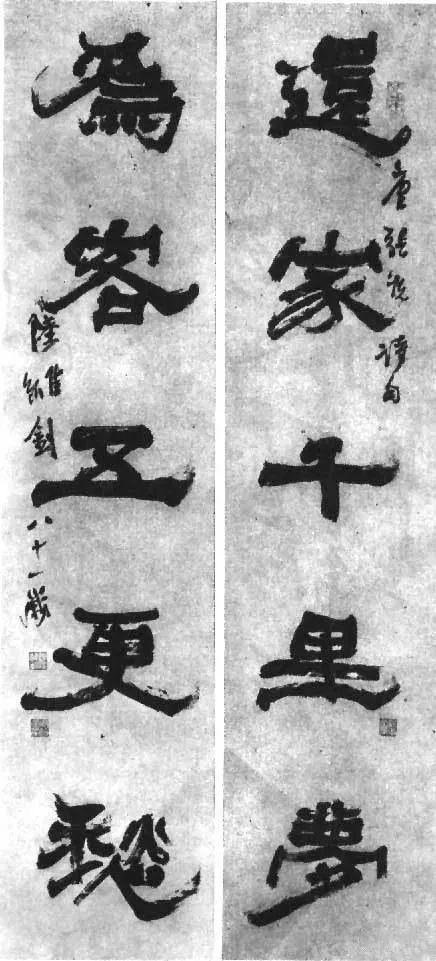 還家千里夢
唐張詩句
為客五更愁
陸維釗八十一歲